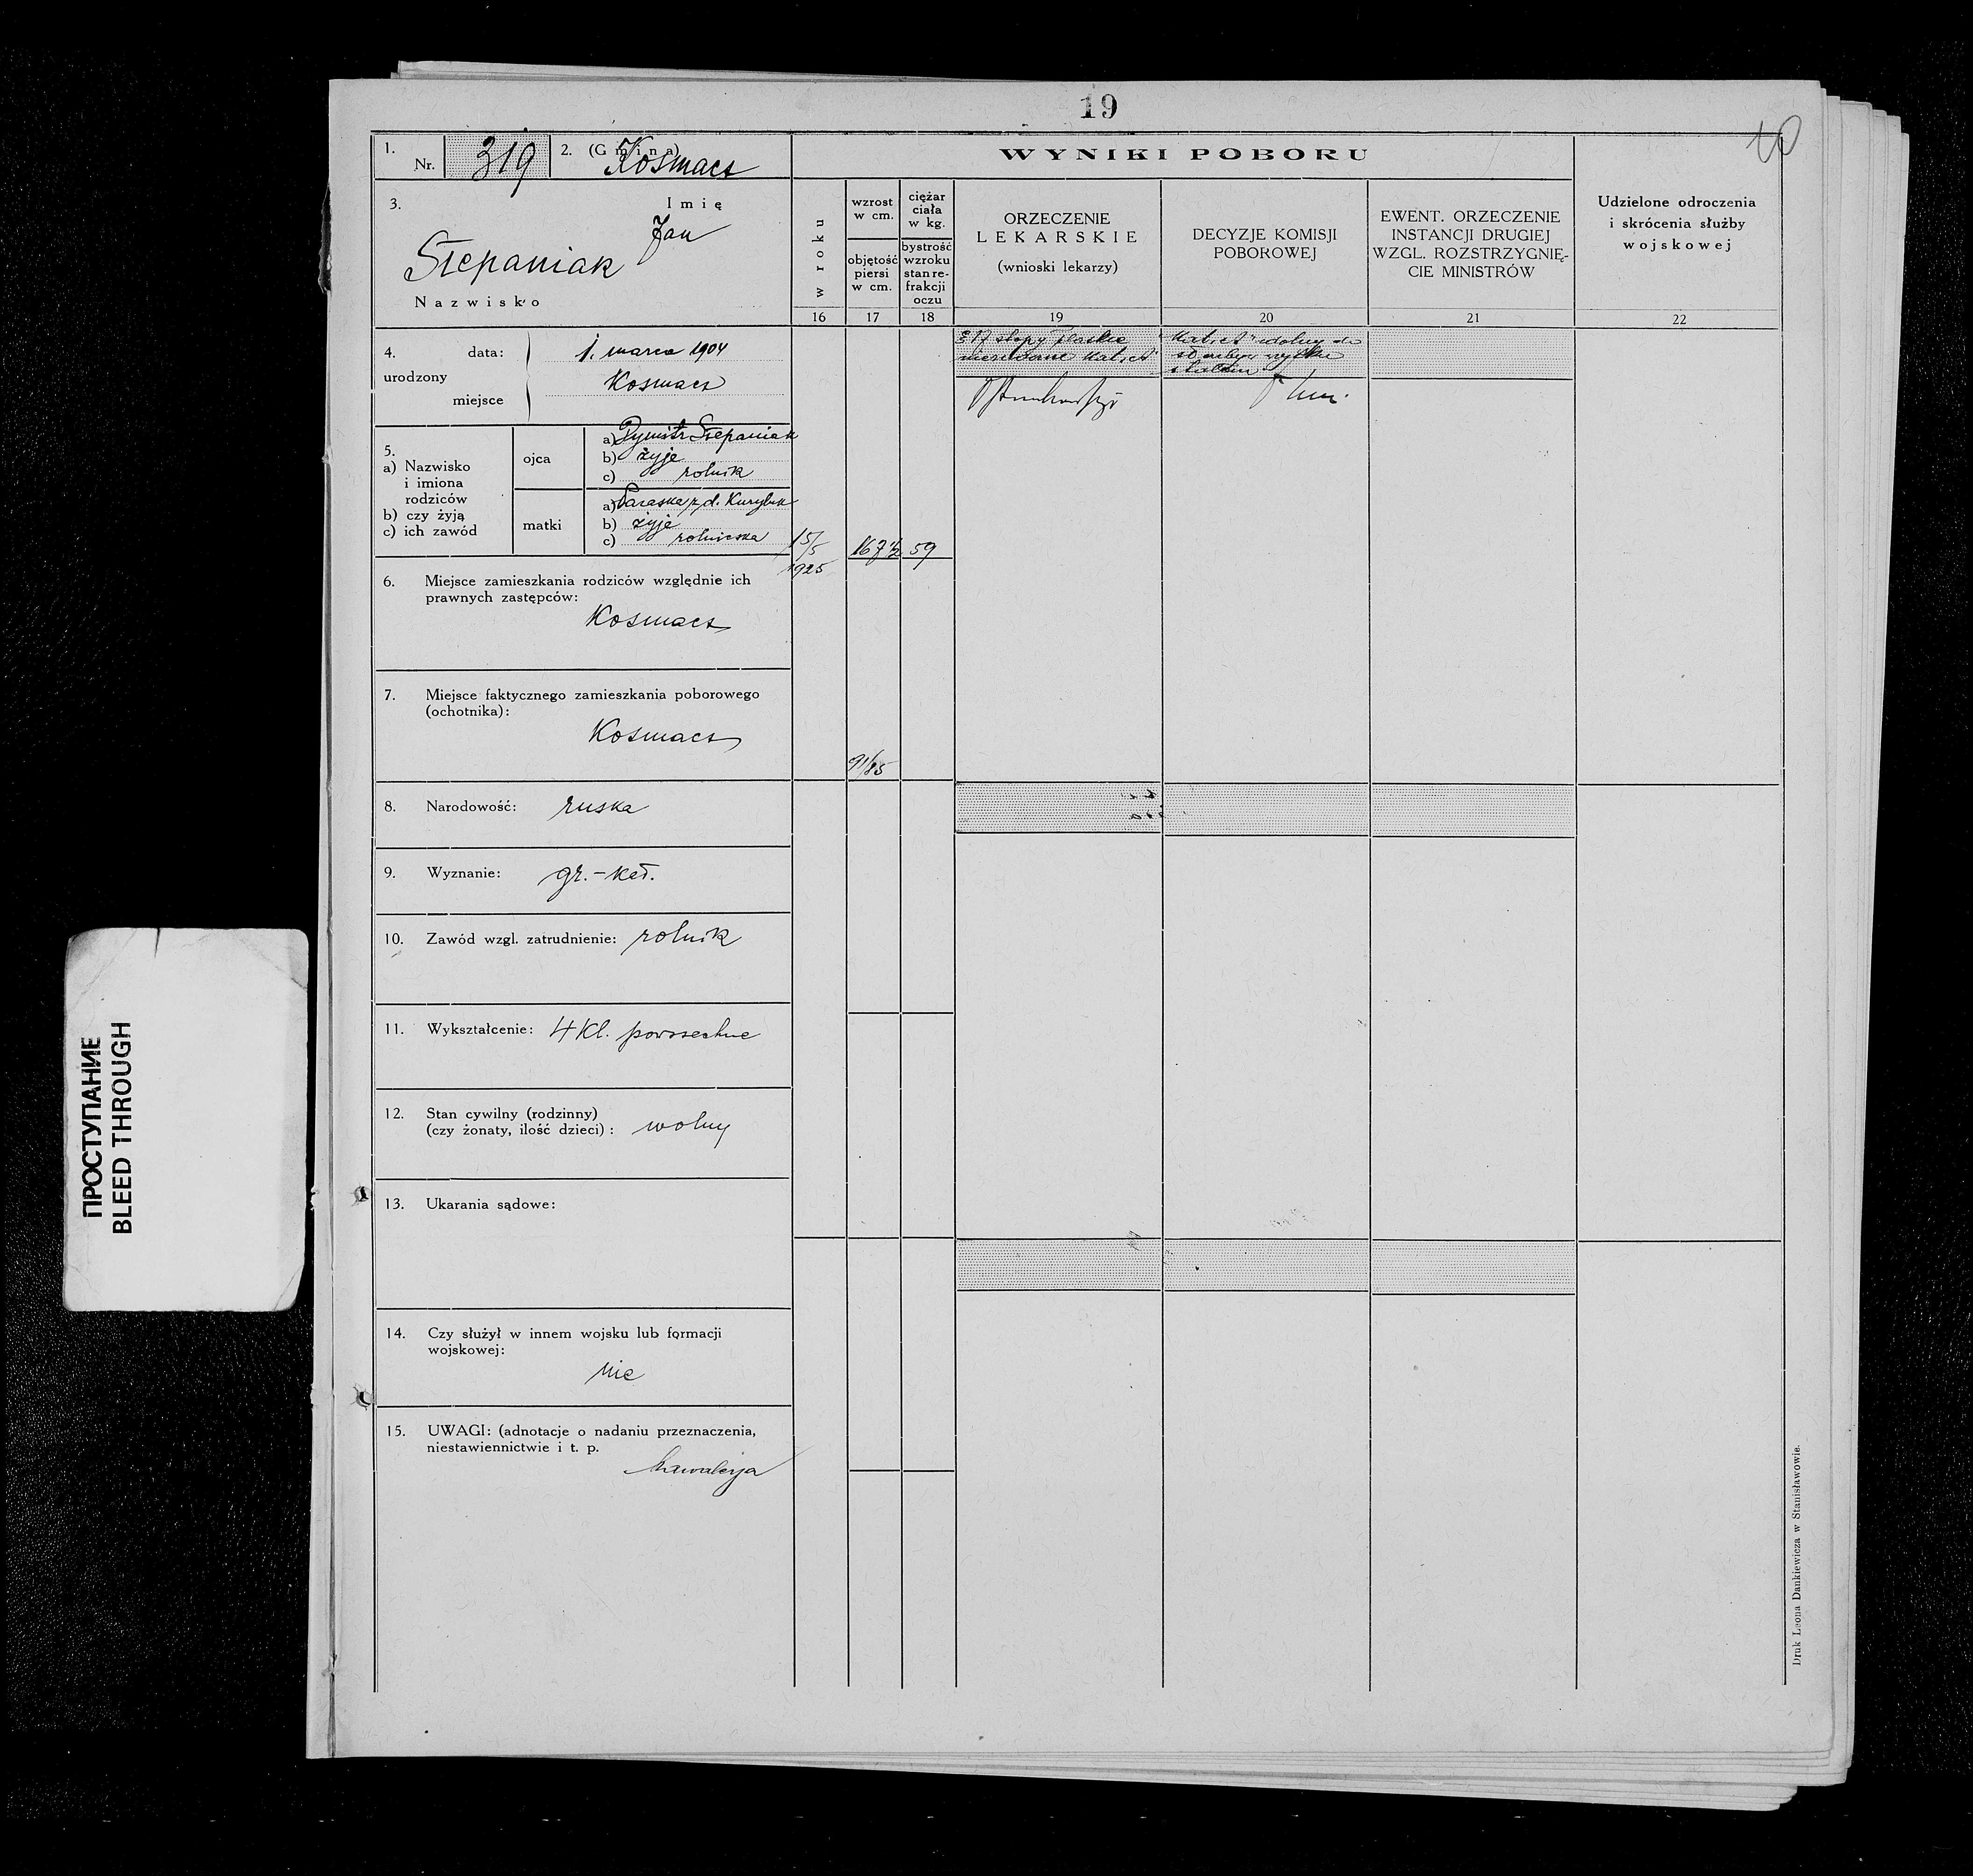 19
10
1.
Nr. 319
2. (Gmina) Kosmacz
WYNIKI POBORU
3.
Imię
Jan
Stepaniak
Nazwisko
w roku
wzrost
w cm.
objętość
piersi
w cm.
ciężar
ciała
w kg.
bystrość
wzroku
stan re-
frakcji
oczu
ORZECZENIE
LEKARSKIE
(wnioski lekarzy)
DECYZJE KOMISJI
POBOROWEJ
EWENT. ORZECZENIE
INSTANCJI DRUGIEJ
WZGL. ROZSTRZYGNIĘ-
CIE MINISTRÓW
Udzielone odroczenia
i skrócenia służby
wojskowej
16 17 18 19 20 21 22
4. data: 1. marca 1904
urodzony
miejsce Kosmacz
stopy płaskie
kat. "A" zdolny do
5.
a) Nazwisko
i imiona
rodziców
b) czy żyją
c) ich zawód
ojca
a) Dymitr Stepaniak
b) żyje
c) rolnik
matki
a) Paraska z d. Kuryluk
b) żyje
c) rolniczka
15/5
1925
167 1/2
59
6. Miejsce zamieszkania rodziców względnie ich
prawnych zastępców:
Kosmacz
7. Miejsce faktycznego zamieszkania poborowego
(ochotnika):
Kosmacz
91/85
8. Narodowość: ruska
9. Wyznanie: gr.-kat.
10. Zawód wzgl. zatrudnienie: rolnik
11. Wykształcenie: 4 kl. powszechne
12. Stan cywilny (rodzinny)
(czy żonaty, ilość dzieci): wolny
13. Ukarania sądowe:
14. Czy służył w innem wojsku lub formacji
wojskowej:
nie
15. UWAGI: (adnotacje o nadaniu przeznaczenia,
niestawiennictwie i t. p.
kawalerja
Druk Leona Dankiewicza w Stanisławowie.
ПРОСТУПАНИЕ
BLEED THROUGH